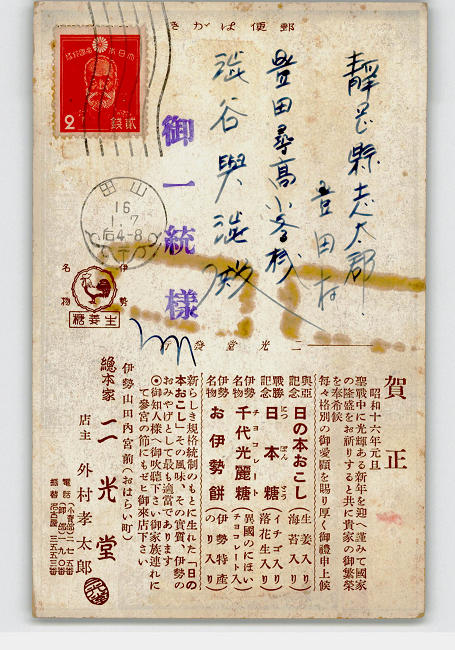 きがは便郵
大日本帝國郵便
2
貳錢
山田
16
1.7
后4-8
靜岡縣志太郡
豊田村
豊田尋高小學校
澁谷與
御一統様
伊勢
名物
生姜糖
二光堂發
賀正
昭和十六年元旦
聖戰中に光輝ある新年を迎へ謹みて國家
の隆盛をお祈りすると共に貴家の御繁榮
を奉希候
毎々格別の御愛顧を賜り厚く御禮申上候
興亞記念 日の本おこし 生姜入り 海苔入り
戰勝記念 日本糖 イチゴ入り 落花生入り
にっぽんとう
伊勢名物 千代光麗糖 異國のにほい チョコレート入り
チヨコレート
伊勢名物 お伊勢餅 伊勢特産 のり入り
新らしき規格統制のもとに生れた「日の
本おこし」その風味、その實質、伊勢の
おみやげとして最も適當であります
◎御知人様へ御吹聽下さい御家族連れに
て參宮の節にもぜひ御來店下さい
伊勢山田内宮前(おはらい町)
總本家 二光堂
店主 外村孝太郎
電話
振替名古屋 三五五三番